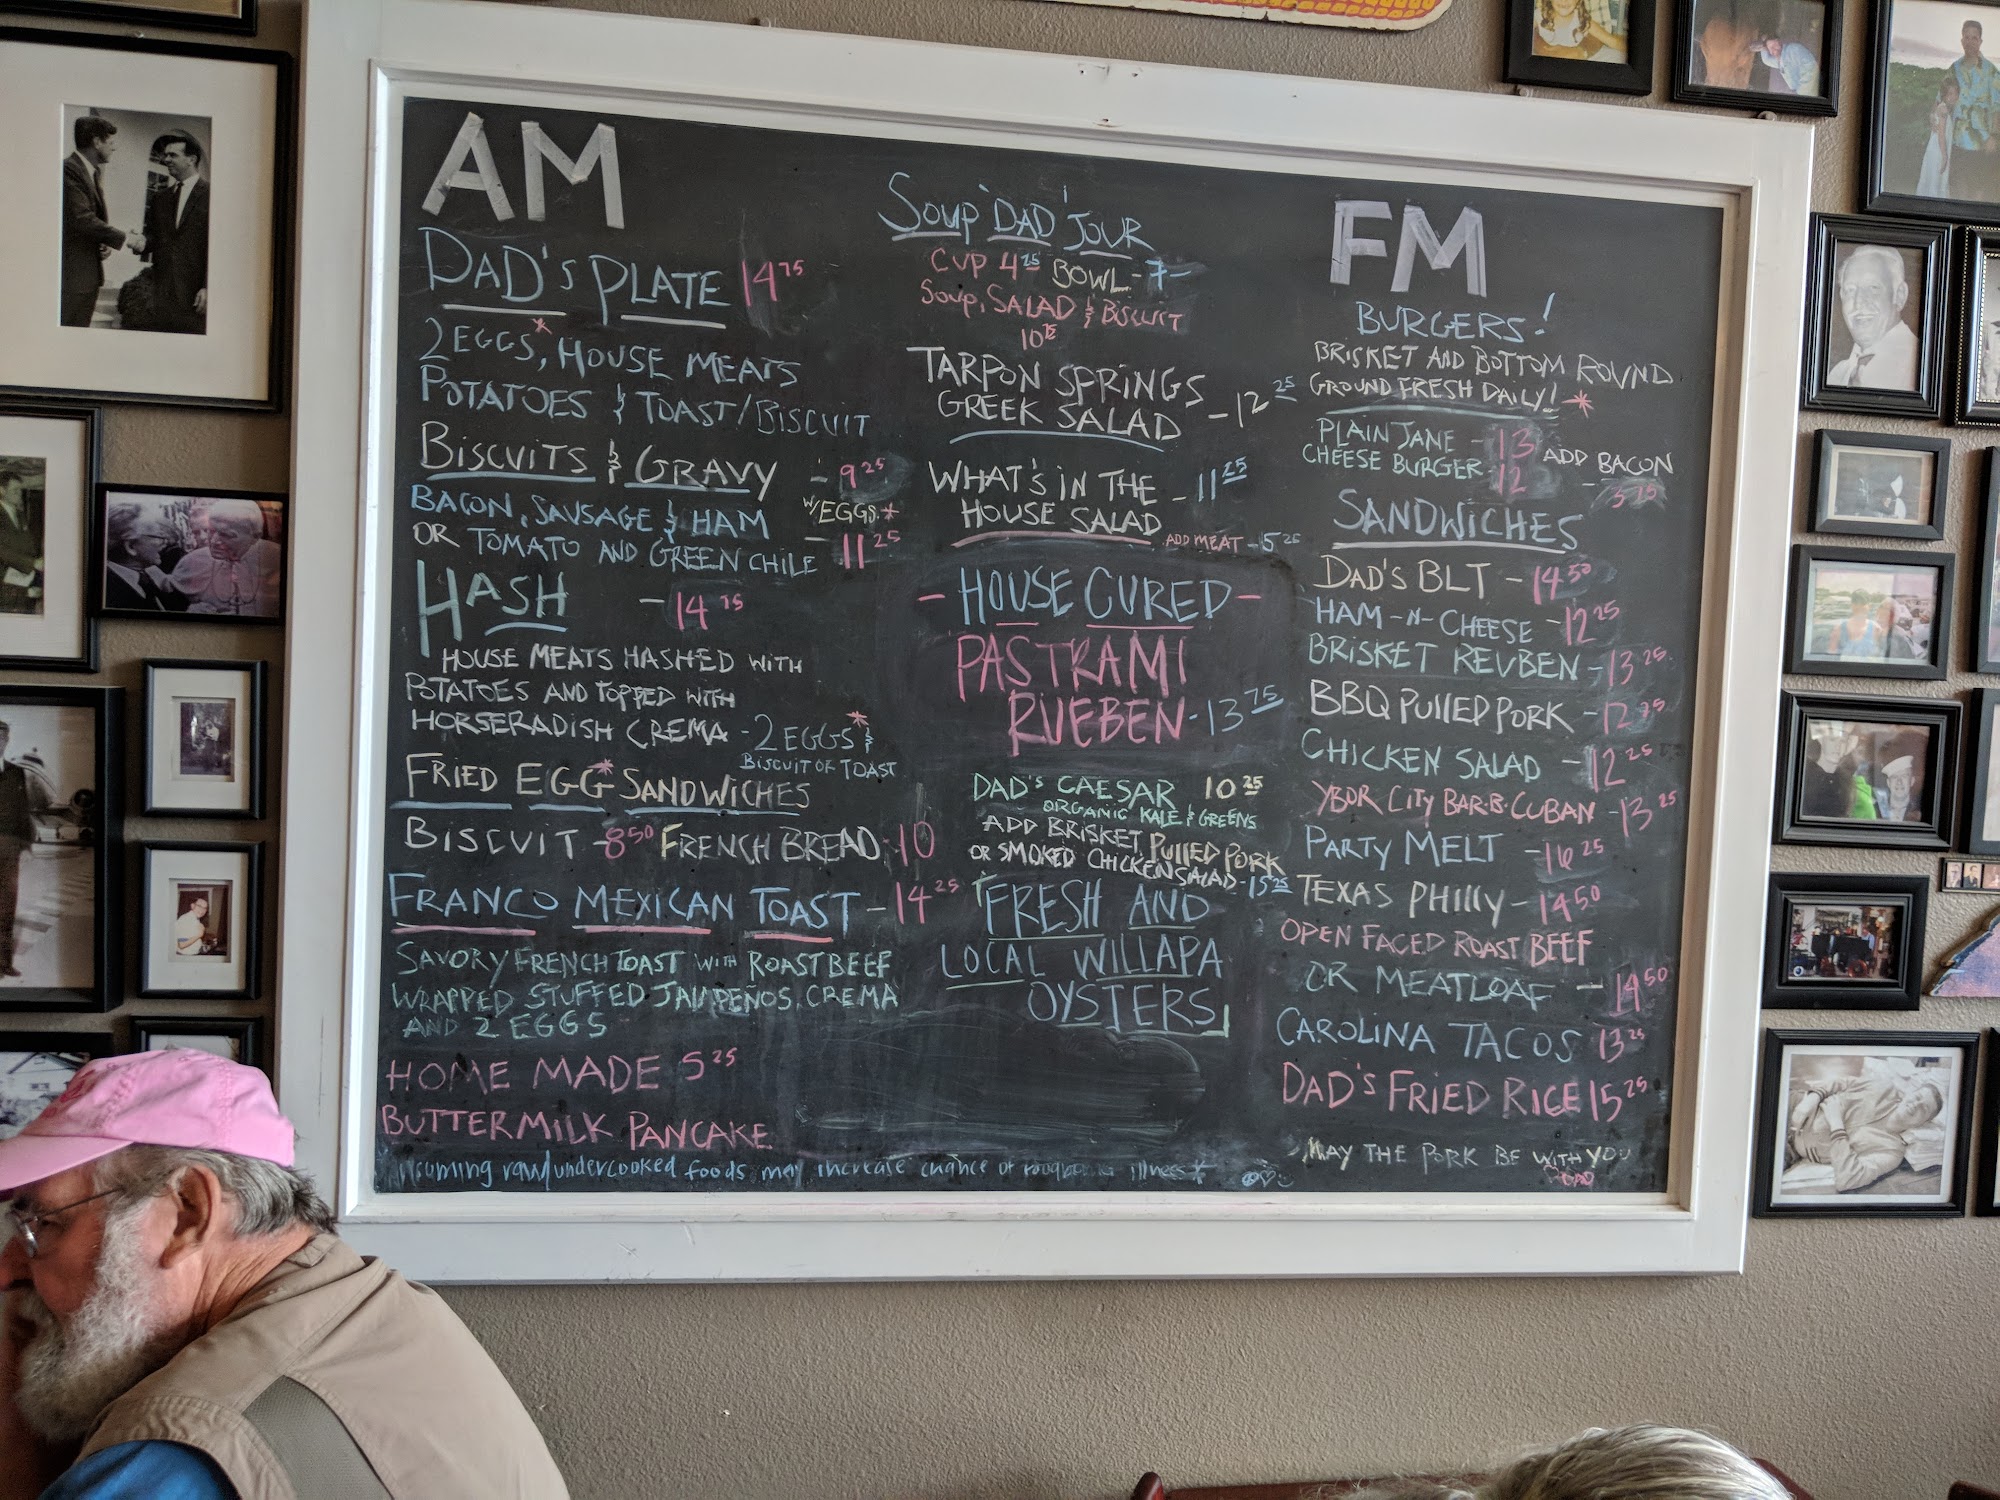 AM
DAD'S PLATE 14 75
2 EGGS*, HOUSE MEATS
POTATOES & TOAST/BISCUIT
BISCUITS & GRAVY - 9 25
BACON, SAUSAGE & HAM W/EGGS*
OR TOMATO AND GREEN CHILE - 11 25
HASH - 14 75
HOUSE MEATS HASHED WITH
POTATOES AND TOPPED WITH
HORSERADISH CREMA - 2 EGGS* &
BISCUIT OR TOAST
FRIED EGG* SANDWICHES
BISCUIT - 8 50 FRENCH BREAD - 10
FRANCO MEXICAN TOAST - 14 25
SAVORY FRENCH TOAST WITH ROAST BEEF
WRAPPED STUFFED JALAPEÑOS, CREMA
AND 2 EGGS
HOME MADE 5 25
BUTTERMILK PANCAKE
raw/undercooked foods may increase chance of illness*
SOUP 'DAD' JOUR
CUP 4 25 BOWL - 7 -
SOUP, SALAD & BISCUIT
TARPON SPRINGS
GREEK SALAD - 12 25
WHAT'S IN THE
HOUSE SALAD - 11 25
ADD MEAT - 5 25
- HOUSE CURED -
PASTRAMI
RUEBEN - 13 75
DAD'S CAESAR 10 25
ORGANIC KALE & GREENS
ADD BRISKET, PULLED PORK
OR SMOKED CHICKEN SALAD - 15 25
FRESH AND
LOCAL WILLAPA
OYSTERS
FM
BURGERS!
BRISKET AND BOTTOM ROUND
GROUND FRESH DAILY! *
PLAIN JANE - 13
CHEESE BURGER - 12
ADD BACON
SANDWICHES
DAD'S BLT - 14 50
HAM-N-CHEESE - 12 25
BRISKET REUBEN - 13 25
BBQ PULLED PORK - 12 75
CHICKEN SALAD - 12 25
YBOR CITY BAR-B-CUBAN - 13 25
PARTY MELT - 16 25
TEXAS PHILLY - 14 50
OPEN FACED ROAST BEEF
OR MEATLOAF - 14 50
CAROLINA TACOS 13 25
DAD'S FRIED RICE 15 25
MAY THE PORK BE WITH YOU
DAD